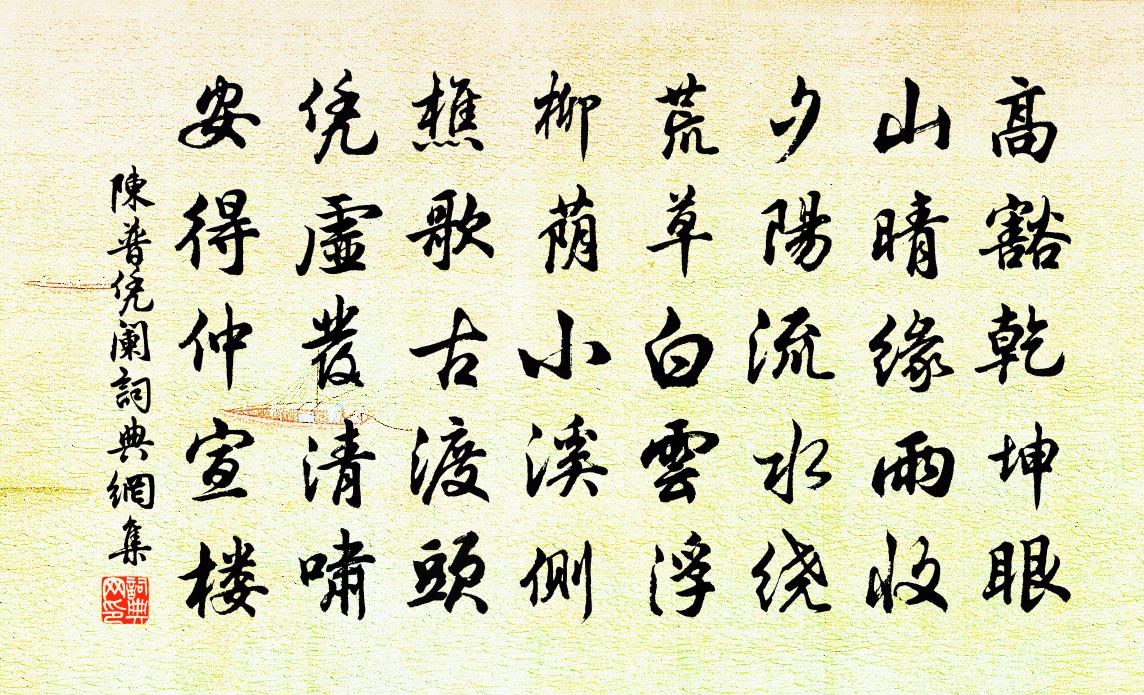 高豁乾坤眼
山晴缘雨收
夕陽流水绕
荒草白雲浮
柳荫小溪側
樵歌古渡頭
凭虚發清嘯
安得仲宣楼
陳普凭阑詞典網集
詞典网印